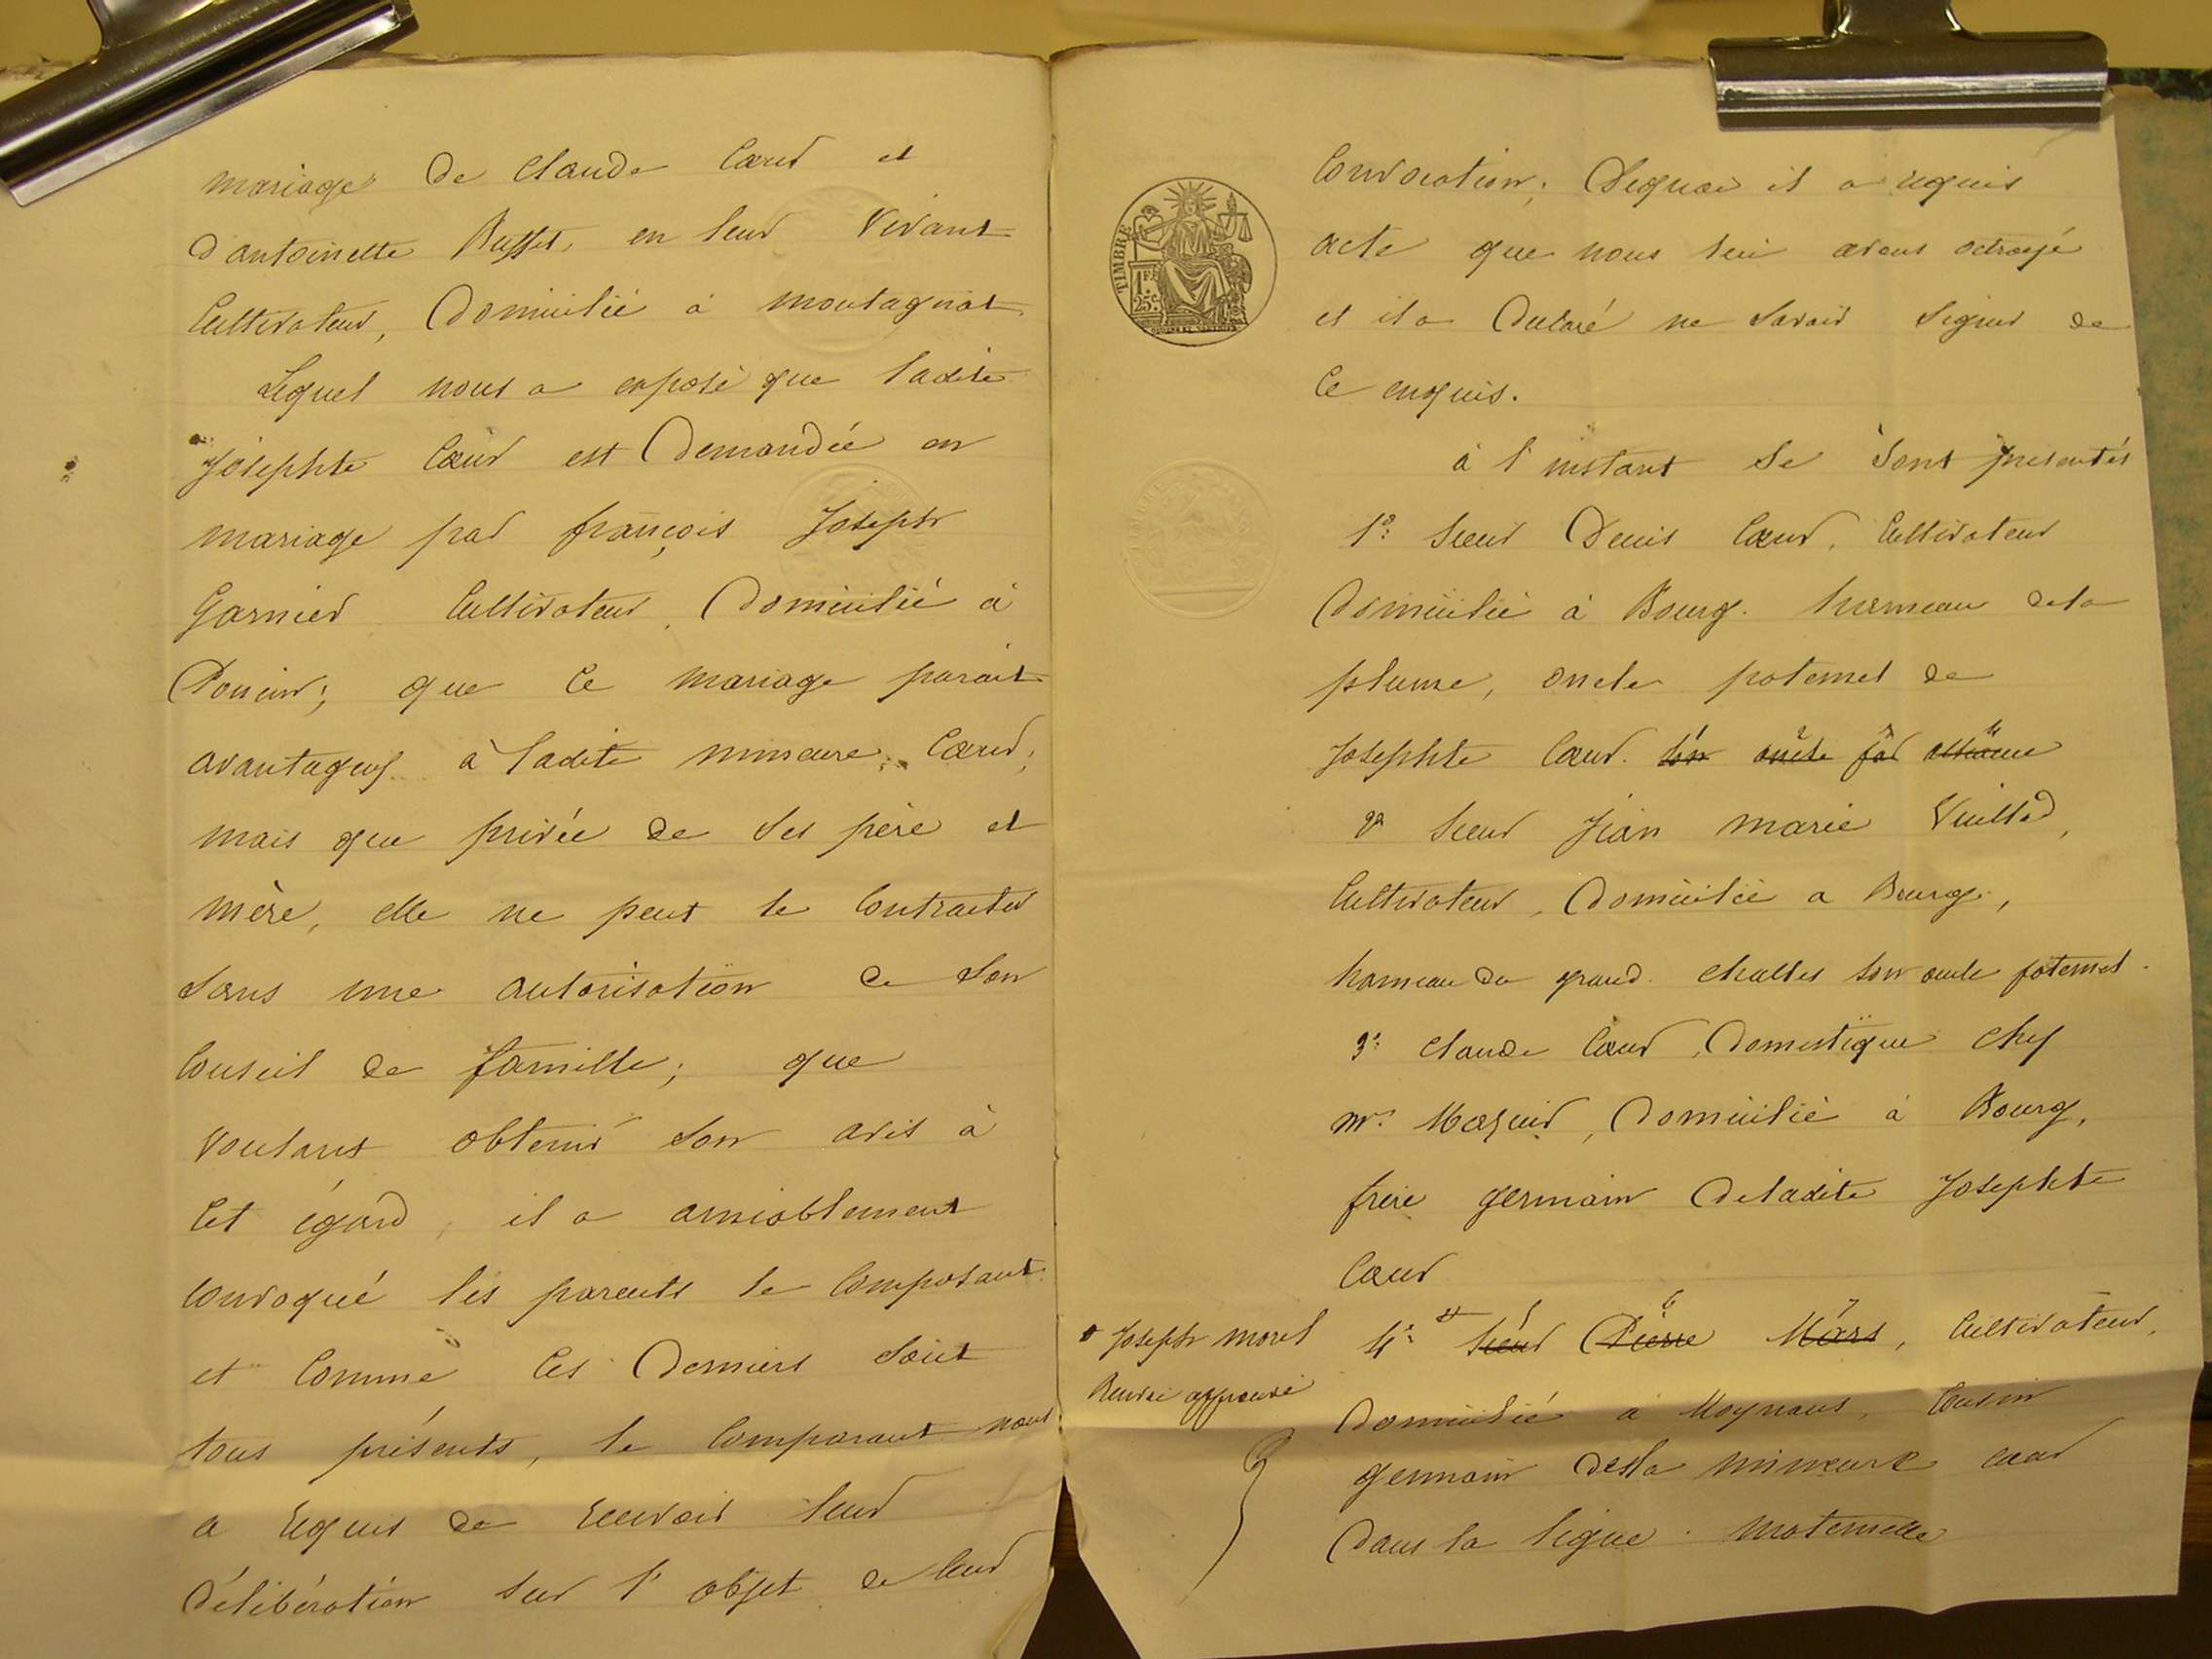 mariage de Claude Cœur et
d'antoinette Buffet, en leur vivant
Cultivateur, Domicilié à montagnat.
Lequel nous a exposé que ladite
Josephte Cœur est Demandée en
mariage par françois Joseph
Garnier Cultivateur, Domicilié à
que ce mariage parait
avantageux à ladite mineure Cœur;
mais que privée de ses père et
mère, elle ne peut le Contracter
sans une autorisation de son
Conseil de famille; que
voulant obtenir son avis à
Cet égard, il a amiablement
convoqué les parents le Composant
et Comme Ces Derniers sont
tous présents, le Comparant nous
a requis de recevoir leur
Délibération sur l'objet de leur
Convocation; Dequoi il a requis
acte que nous lui avons octroyé
et il a Déclaré ne savoir signer de
Ce enquis.
à l'instant se sont présentés
1°: sieur Denis Cœur, Cultivateur
Domicilié à Bourg. hameau dela
plume, oncle paternel de
Josephte Cœur. son oncle par alliance
2° sieur Jean marie Vuillod,
Cultivateur, Domicilié a Bourg,
hameau du grand Challes son oncle paternel.
3°: Claude Cœur, Domestique chez
mr. Domicilié à Bourg,
frère germain deladite Josephte
Cœur
Joseph morel
Renvoi approuvé
4°: sieur Pierre Mars, Cultivateur,
domicilié a Cousin
germain della mineure cœur
Dans la ligne maternelle
TIMBRE
1.F
25c.